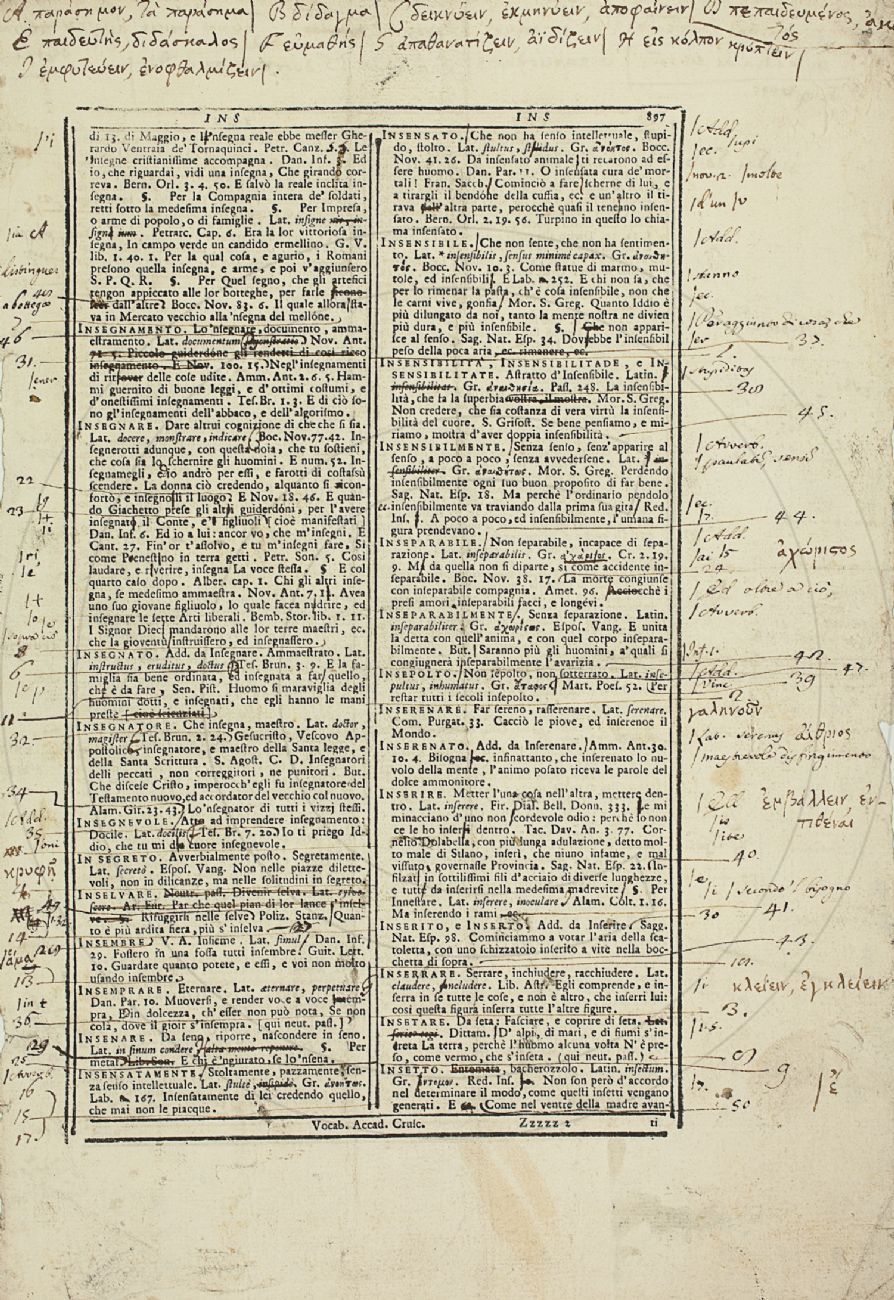 A. παράσημον, τὰ παράσημα | B δίδαγμα | C δεικνύειν, ἐκμηνύειν, ἀποφαίνειν | D πεπαιδευμένος,
E παιδευτὴς, διδάσκαλος | F εὐμαθής | G ἀπαθανατίζειν, ἀϊδίζειν | H εἰς κόλπον κρύπτειν |
I ἐμφυτεύειν, ἐνοφθαλμίζειν |
INS
di 13. di Maggio, e l'nsegna reale ebbe messer Ghe-
rardo Ventraia de' Tornaquinci. Petr. Canz. 5. 5. Le
'nsegne cristianissime accompagna. Dan. Inf. 3. Ed
io, che riguardai, vidi una insegna, Che girando cor-
reva. Bern. Orl. 3. 4. 50. E salvò la reale inclita in-
segna. §. Per la Compagnia intera de' soldati,
retti sotto la medesima insegna. §. Per Impresa,
o arme di popolo, o di famiglie. Lat. insigne
Petrarc. Cap. 6. Era la lor vittoriosa in-
segna, In campo verde un candido ermellino. G. V.
lib. 1. 40. 1. Per la qual cosa, e agurio, i Romani
presono quella insegna, e arme, e poi v'aggiunsero
S. P. Q. R. §. Per Quel segno, che gli artefici
tengon appiccato alle lor botteghe, per farle
dall'altre. Bocc. Nov. 83. 6. Il quale allora sta-
va in Mercato vecchio alla 'nsegna del mellone.
INSEGNAMENTO. Lo 'nsegnare, documento, amma-
estramento. Lat. documentum, Nov. Ant.
Piccolo guiderdone gli rendetti di così ricco
insegnamento. E Nov. 100. 15. Negl'insegnamenti
di ritrovar delle cose udite. Amm. Ant. 2. 6. 5. Ham-
mi guernito di buone leggi, e d'ottimi costumi, e
d'onestissimi insegnamenti. Tes. Br. 1. 3. E di ciò so-
no gl'insegnamenti dell'abbaco, e dell'algorismo.
INSEGNARE. Dare altrui cognizione di che che si sia.
Lat. docere, monstrare, indicare. Bocc. Nov. 77. 42. In-
segnerotti adunque, con questa doia, che tu sostieni,
che cosa sia lo schernire gli huomini. E num. 52. In-
segnamegli, e io andrò per essi, e farotti di costassù
scendere. La donna ciò credendo, alquanto si acon-
fortò, e insegnolli il luogo. E Nov. 18. 46. E quan-
do Giachetto prese gli altri guiderdoni, per l'avere
insegnato il Conte, e i figliuoli [cioè manifestati]
Dan. Inf. 6. Ed io a lui: ancor vo, che m'insegni. E
Cant. 27. Fin' or t'assolvo, e tu m'insegni fare, Sì
come Penestrino in terra getti. Petr. Son. 5. Così
laudare, e riverire, insegna La voce stessa. § E col
quarto caso dopo. Alber. cap. 1. Chi gli altri inse-
gna, se medesimo ammaestra. Nov. Ant. 7. 11. Avea
uno suo giovane figliuolo, lo quale facea nudrire, ed
insegnare le sette Arti liberali. Bemb. Stor. lib. 1. 11.
I Signor Dieci mandarono alle lor terre maestri, ec.
che la gioventù instruissero, ed insegnassero.
INSEGNATO. Add. da Insegnare. Ammaestrato. Lat.
instructus, eruditus, doctus. Tes. Brun. 3. 9. E la fa-
miglia sia bene ordinata, ed insegnata a far quello,
che è da fare, Sen. Pist. Huomo si maraviglia degli
huomini dotti, e insegnati, che egli hanno le mani
preste [cioè scienziati]
INSEGNATORE. Che insegna, maestro. Lat. doctor,
magister. Tes. Brun. 2. 24. Gesucristo, Vescovo Ap-
postolico, insegnatore, e maestro della Santa legge, e
della Santa Scrittura. S. Agost. C. D. Insegnatori
delli peccati, non correggitori, ne punitori. But.
Che discese Cristo, imperocch' egli fu insegnatore del
Testamento nuovo, ed accordator del vecchio col nuovo.
Alam. Gir. 23. 43. Lo 'nsegnator di tutti i vizzj stessi.
INSEGNEVOLE. Atto ad imprendere insegnamento:
Docile. Lat. docilis. Tes. Br. 7. 20. Io ti priego Id-
dio, che tu mi die cuore insegnevole.
IN SEGRETO. Avverbialmente posto. Segretamente.
Lat. secretò. Espos. Vang. Non nelle piazze dilette-
voli, non in dilicanze, ma nelle solitudini in segreto.
INSELVARE. Neutr. pass. Divenir selva.
Ar. Fur. Par che quel pian di lor lance s'insel-
ve. §. Rifuggirh nelle selve. Poliz. Stanz. Quan-
to è più ardita fiera, più s'inselva
INSEMBRE. V. A. Insieme. Lat. simul. Dan. Inf.
29. Fossero in una fossa tutti insembre. Guit. Lett.
10. Guardate quanto potete, e essi, e voi non molto
usando insembre.
INSEMPRARE. Eternare. Lat. æternare, perpetuare.
Dan. Par. 10. Muoversi, e render voce a voce in tem-
pra, E in dolcezza, ch'esser non può nota, Se non
colà, dove il gioir s'insempra. [qui neut. pass.]
INSENARE. Da seno, riporre, nascondere in seno.
Lat. in sinum condere, §. Per
metaf. Lib. Son. E chi è 'ngiuriato, se lo 'nsena.
INSENSATAMENTE. Stoltamente, pazzamente, sen-
za senso intellettuale. Lat. stultè, insipidè. Gr. ἀνοήτως.
Lab. n. 167. Insensatamente di lei credendo quello,
che mai non le piacque.
INS 897
INSENSATO. Che non ha senso intellettuale, stupi-
do, stolto. Lat. stultus, stupidus. Gr. ἀνόητος. Bocc.
Nov. 41. 26. Da insensato animale ti recarono ad es-
sere huomo. Dan. Par. 11. O insensata cura de' mor-
tali! Fran. Sacch. Cominciò a fare scherne di lui, e
a tirargli il bendone della cuffia, ec. e un'altro il ti-
rava dall'altra parte, perocchè quasi il teneano insen-
sato. Bern. Orl. 2. 19. 56. Turpino in questo lo chia-
ma insensato.
INSENSIBILE. Che non sente, che non ha sentimen-
to. Lat. * insensibilis, sensus minimè capax. Gr. ἀναίσθη-
τος. Bocc. Nov. 10. 3. Come statue di marmo, mu-
tole, ed insensibili. E Lab. n. 252. E chi non sa, che
per lo rimenar la pasta, ch' è cosa insensibile, non che
le carni vive, gonfia. Mor. S. Greg. Quanto Iddio è
più dilungato da noi, tanto la mente nostra ne divien
più dura, e più insensibile. §. Che non appari-
sce al senso. Sag. Nat. Esp. 34. Dovrebbe l'insensibil
peso della poca aria, ec. rimanere, ec.
INSENSIBILITÀ, INSENSIBILITADE, e IN-
SENSIBILITATE. Astratto d'Insensibile. Latin.
insensibilitas. Gr. ἀναισθησία. Pass. 248. La insensibi-
lità, che fa la superbia vostra, il mostra. Mor. S. Greg.
Non credere, che sia costanza di vera virtù la insensi-
bilità del cuore. S. Grisost. Se bene pensiamo, e mi-
riamo, mostra d'aver doppia insensibilità.
INSENSIBILMENTE. Senza senso, senz'apparire al
senso, a poco a poco, senza avvedersene. Lat. in-
sensibiliter. Gr. ἀναισθήτως. Mor. S. Greg. Perdendo
insensibilmente ogni tuo buono proposito di far bene.
Sag. Nat. Esp. 18. Ma perchè l'ordinario pendolo
ec. insensibilmente va traviando dalla prima sua gita. Red.
Ins. A poco a poco, ed insensibilmente, l'umana fi-
gura prendevano.
INSEPARABILE. Non separabile, incapace di sepa-
razione. Lat. inseparabilis. Gr. ἀχώριστος. Cr. 2. 19.
9. Ma da quella non si diparte, sì come accidente in-
separabile. Bocc. Nov. 38. 17. La morte congiunse
con inseparabile compagnia. Amet. 96. Acciocchè i
presi amori inseparabili facci, e longevi.
INSEPARABILMENTE. Senza separazione. Latin.
inseparabiliter. Gr. ἀχωρίστως. Espos. Vang. E unita
la detta con quell'anima, e con quel corpo insepara-
bilmente. But. Saranno più gli huomini, a' quali si
congiugnerà inseparabilmente l'avarizia.
INSEPOLTO. Non sepolto, non sotterrato. Lat. inse-
pultus, inhumatus. Gr. ἄταφος. Mart. Poes. 52. (Per
restar tutti i secoli insepolto.
INSERENARE. Far sereno, rasserenare. Lat. serenare.
Com. Purgat. 33. Cacciò le piove, ed inserenoe il
Mondo.
INSERENATO. Add. da Inserenare. Amm. Ant. 30.
10. 4. Bisogna ec. infinattanto, che inserenato lo nu-
volo della mente, l'animo posato riceva le parole del
dolce ammonitore.
INSERIRE. Metter l'una cosa nell'altra, mettere den-
tro. Lat. inserere. Fir. Dial. Bell. Donn. 333. Le mi
minacciano d'uno non scordevole odio: perchè io non
ce le ho inserti dentro. Tac. Dav. An. 3. 77. Cor-
nelio Dolabella, con più lunga adulazione, detto mol-
to male di Silano, inserì, che niuno infame, e mal
vissuto, governasse Provincia. Sag. Nat. Esp. 21. In-
filzati in sottilissimi fili d'acciaio di diverse lunghezze,
e tutti da inserirsi nella medesima madrevite. §. Per
Innestare. Lat. inserere, inoculare. Alam. Colt. 1. 16.
Ma inserendo i rami
INSERITO, e INSERTO. Add. da Inserire. Sagg.
Nat. Esp. 98. Cominciammo a votar l'aria della sca-
toletta, con uno schizzatoio inserito a vite nella boc-
chetta di sopra.
INSERRARE. Serrare, inchiudere, racchiudere. Lat.
claudere, includere. Lib. Astr. Egli comprende, e in-
serra in se tutte le cose, e non è altro, che inserri lui:
così questa figura inserra tutte l'altre figure.
INSETARE. Da seta: Fasciare, e coprire di seta.
Dittam. D' alpi, di mari, e di fiumi s'in-
sreta La terra, perchè l'huomo alcuna volta N' è pre-
so, come vermo, che s'inseta. (qui neut. pass.)
INSETTO. Entomata, bacherozzolo. Latin. insectum.
Gr. ἔντομον. Red. Ins. Non son però d'accordo
nel determinare il modo, come questi insetti vengano
generati. E Come nel ventre della madre avan-
Vocab. Accad. Crusc. Zzzzz 2 ti
46
31.
22
23
6
11.
32.
34
35.
κρυφῇ
14
ἅμα
13
36
29
25
16
15
17
Add.
ec.
d'un
Add.
ec.
37.
30
45.
Avverb.
ec.
44.
Add.
24
ἀχώριστος
Ed oltre a ciò,
Avverb.
42.
47.
39
γαληνοῦν
αἴθριος
ἐμβάλλειν, ἐν-
τιθέναι
40.
secondo 'l bisogno
41.
30
43.
κλείειν, ἐγκλείειν
3.
9
50